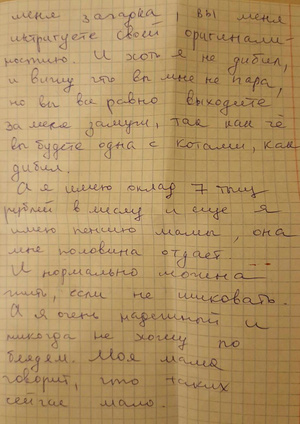 меня загадка, вы меня
интригуете своей оригиналь-
ностию. И хоть я не дибил,
и вижу что вы мне не пара,
но вы все равно выходите
за меня замуж, так как чё
вы будете одна с котами, как
дибил.
А я имею оклад 7 тыщ
рублей в месяц и еще я
имею пенсию мамы, она
мне половина отдает.
И нормально можна
жить, если не шиковать.
А я очень надежный и
никогда не хожу по
блядям. Моя мама
говорит, что таких
сейчас мало.